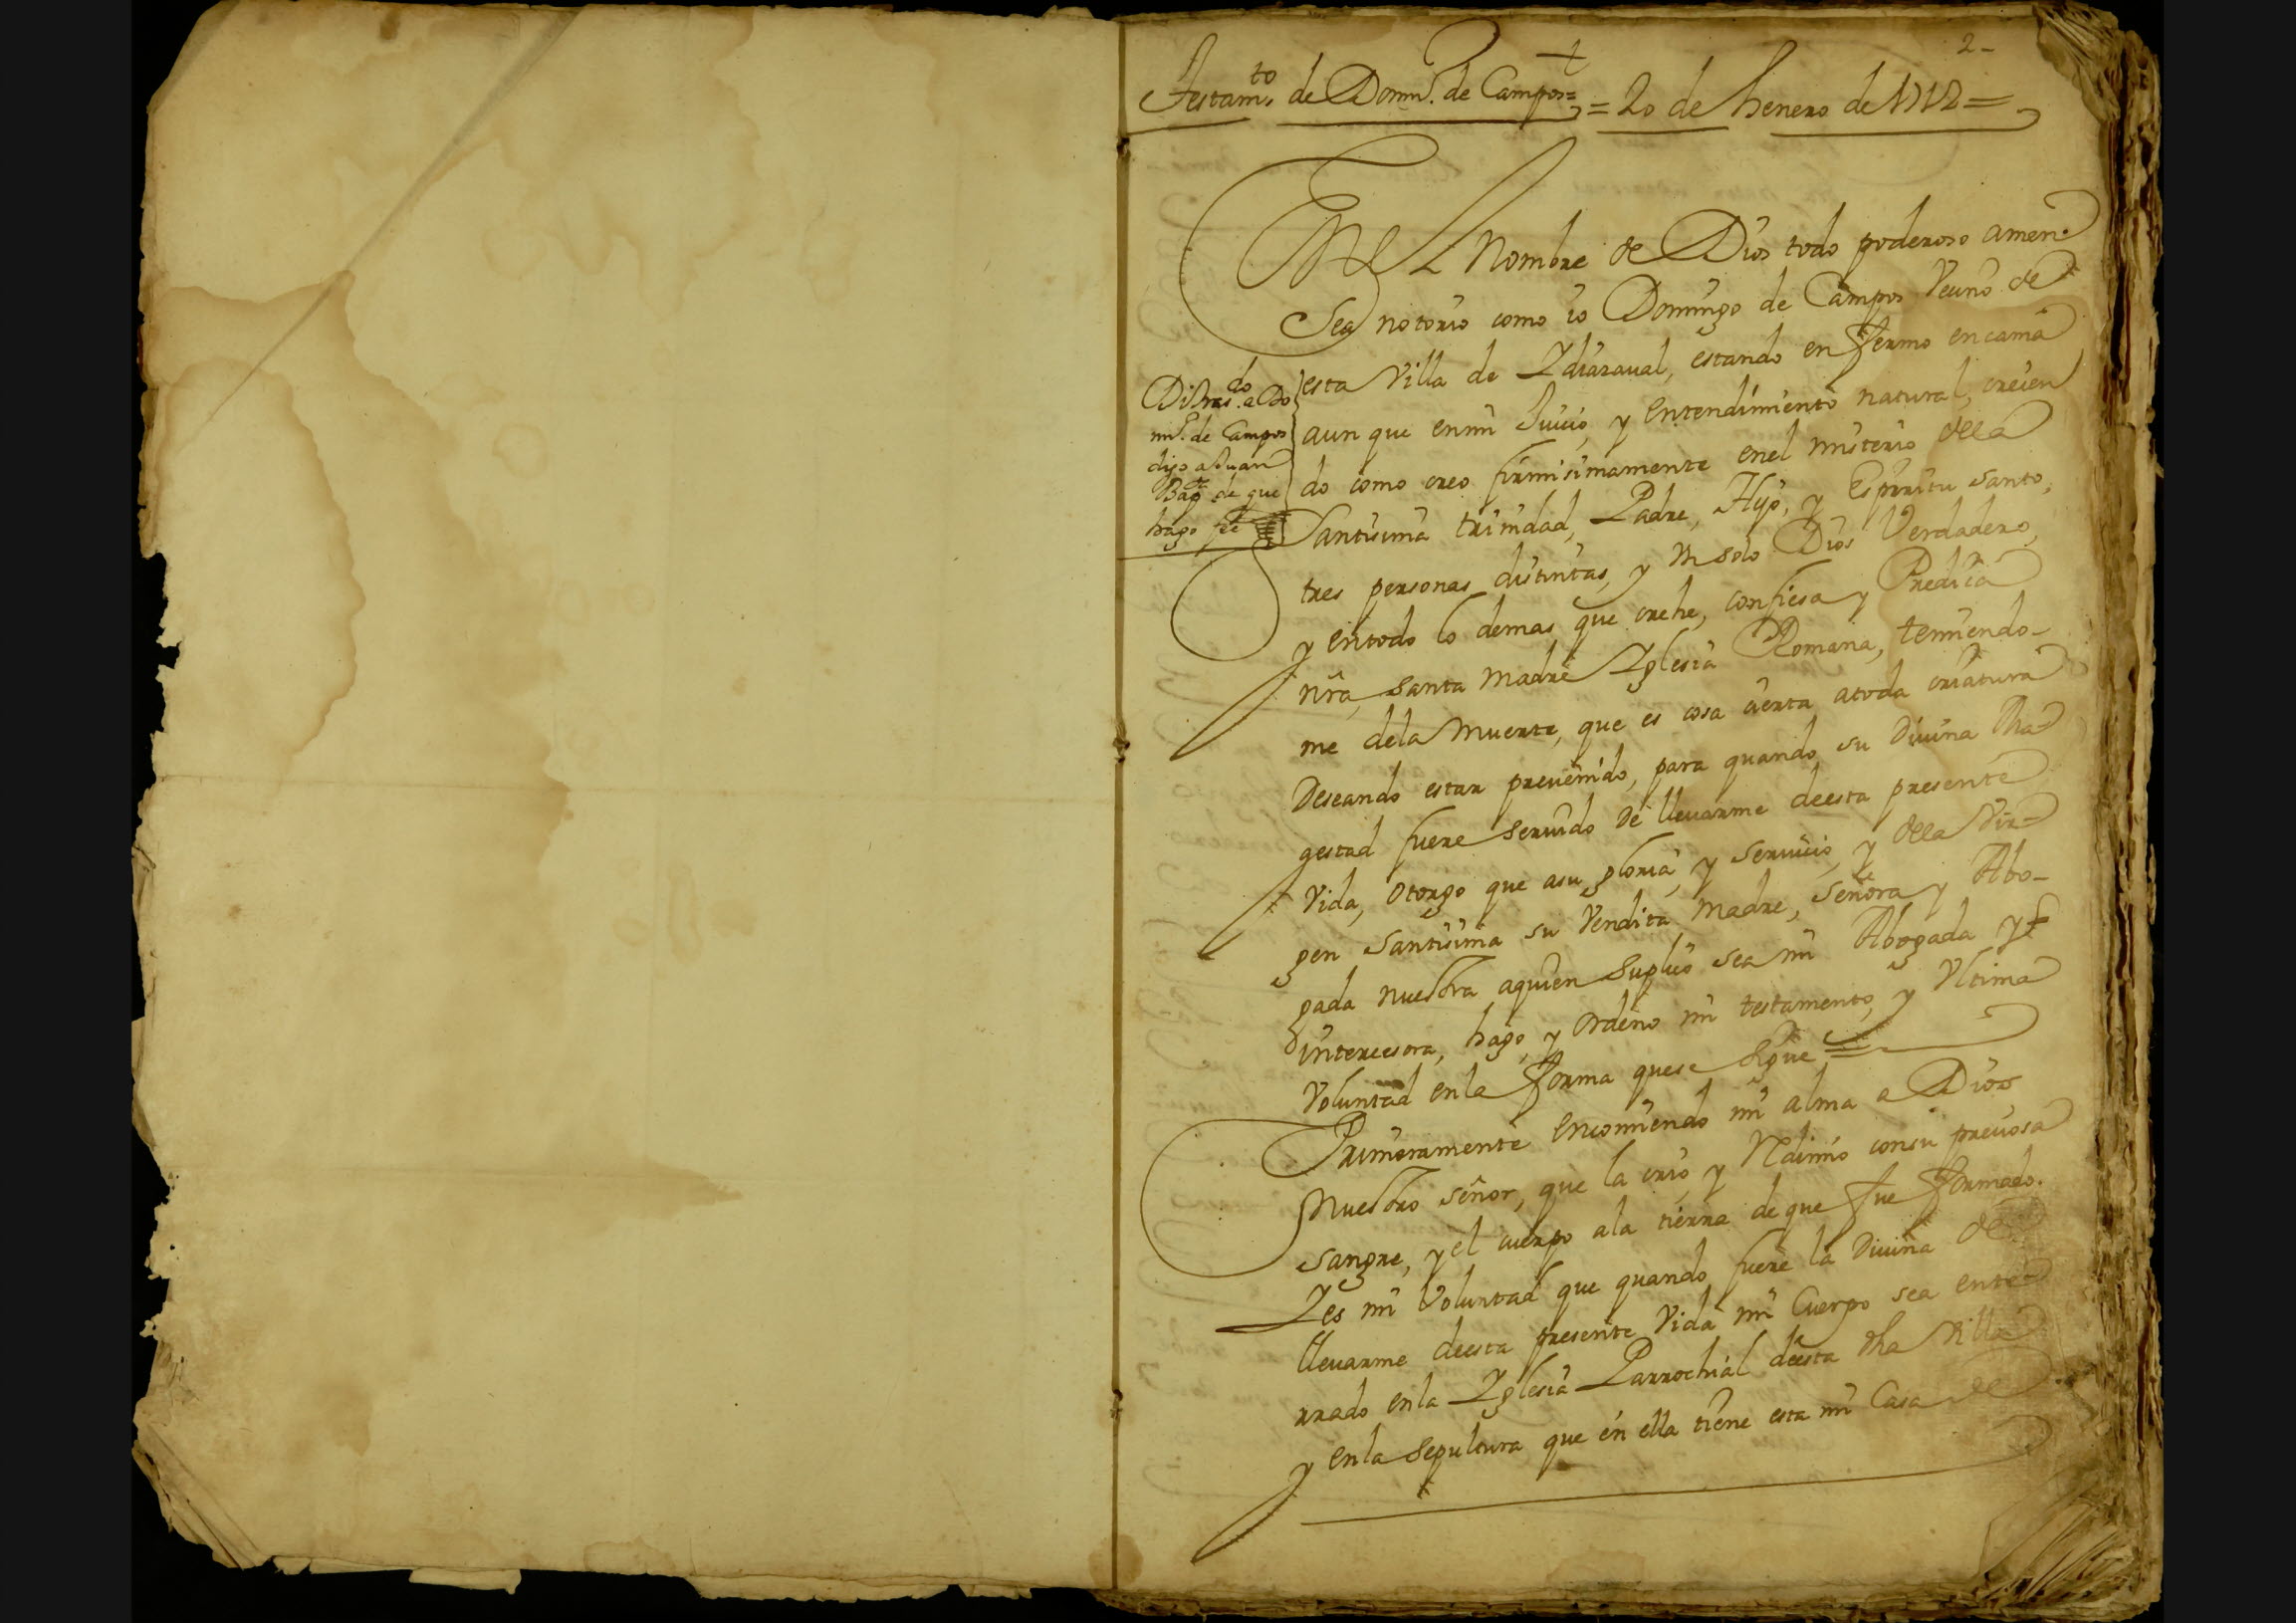 2-
Testam.to de Domi.o de Campos = 20 de henero de 1712 =
EN EL Nombre de Dios todo poderoso amen.
Sea notorio como io Domingo de Campos Veçino de
esta Villa de Ydiazaual, estando enfermo encama
aun que enmi Juiçio, y entendimiento natural, creien
do como creo firmisimamente enel misterio dela
Santisima trinidad, Padre, Hijo, y Espiritu santo,
tres personas distintas, y Un solo Dios Verdadero,
y entodo lo demas que crehe, confiesa y Predica
nr̃a santa madre Yglesia Romana, temiendo-
me dela muerte, que es cosa cierta atoda criatura
Deseando estar preuenido, para quando su Diuina Ma-
gestad fuere seruido de lleuarme deesta presente
Vida, otorgo que asu gloria, y seruiçio, y dela Vir-
gen Santisima su Vendita madre, señora y Abo-
gada nuestra aquien suplico sea mi Abogada, y
intercesora, hago, y ordeno mi testamento, y Vltima
Voluntad enla forma quese sigue =
Primeramente encomiendo mi alma a Dios
nuestro señor, que la crio, y Redimio consu preciosa
sangre, y el cuerpo ala tierra deque fue formado.
Yes mi Voluntad que quando fuere la Diuina de
lleuarme deesta presente Vida mi Cuerpo sea ente-
rrado enla Yglesia Parrochial deesta dha Villa
y enla sepultura que en ella tiene esta mi Casa de
Di tras.do a Do
mi.o de Campos
digo a Juan
Bap.ta de que
hago fee